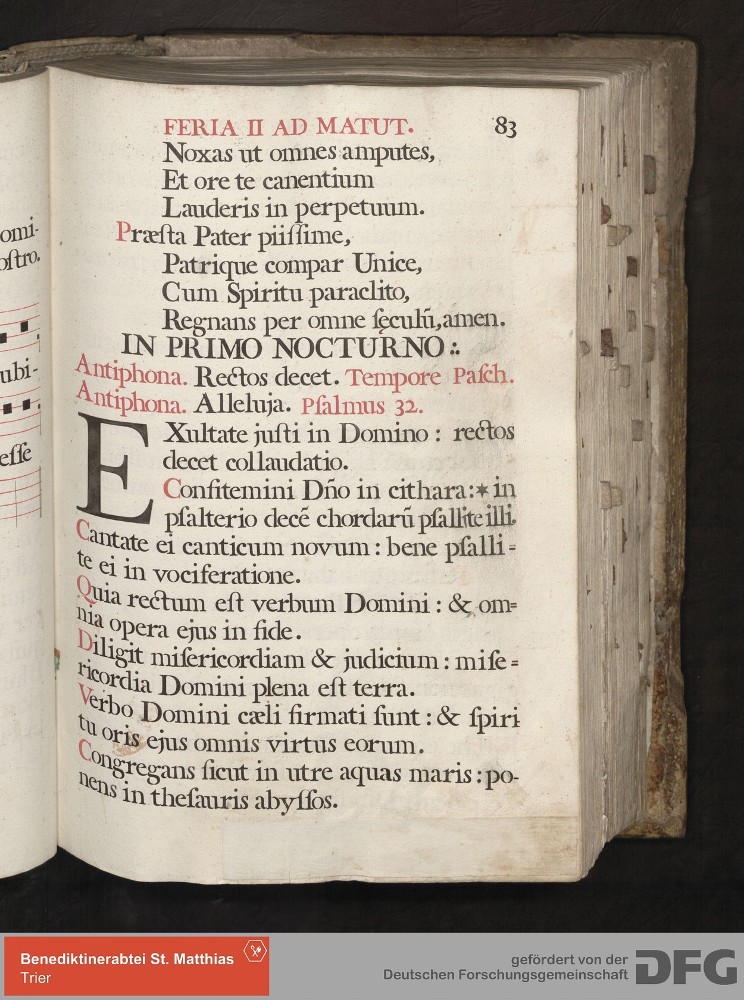 omi-
oſtro.
ubi-
eſſe
FERIA II AD MATUT. 83
Noxas ut omnes amputes,
Et ore te canentium
Lauderis in perpetuum.
Præſta Pater piiſſime,
Patrique compar Unice,
Cum Spiritu paraclito,
Regnans per omne ſęculũ, amen.
IN PRIMO NOCTURNO :.
Antiphona. Rectos decet. Tempore Paſch.
Antiphona. Alleluja. Pſalmus 32.
EXultate juſti in Domino : rectos
decet collaudatio.
Confitemini Dño in cithara:✶ in
pſalterio decẽ chordarũ pſallite illi.
Cantate ei canticum novum : bene pſalli=
te ei in vociferatione.
Quia rectum eſt verbum Domini : & om=
nia opera ejus in fide.
Diligit miſericordiam & judicium : miſe=
ricordia Domini plena eſt terra.
Verbo Domini cæli firmati ſunt : & ſpiri
tu oris ejus omnis virtus eorum.
Congregans ſicut in utre aquas maris : po-
nens in theſauris abyſſos.
Benediktinerabtei St. Matthias
Trier
gefördert von der
Deutschen Forschungsgemeinschaft
DFG